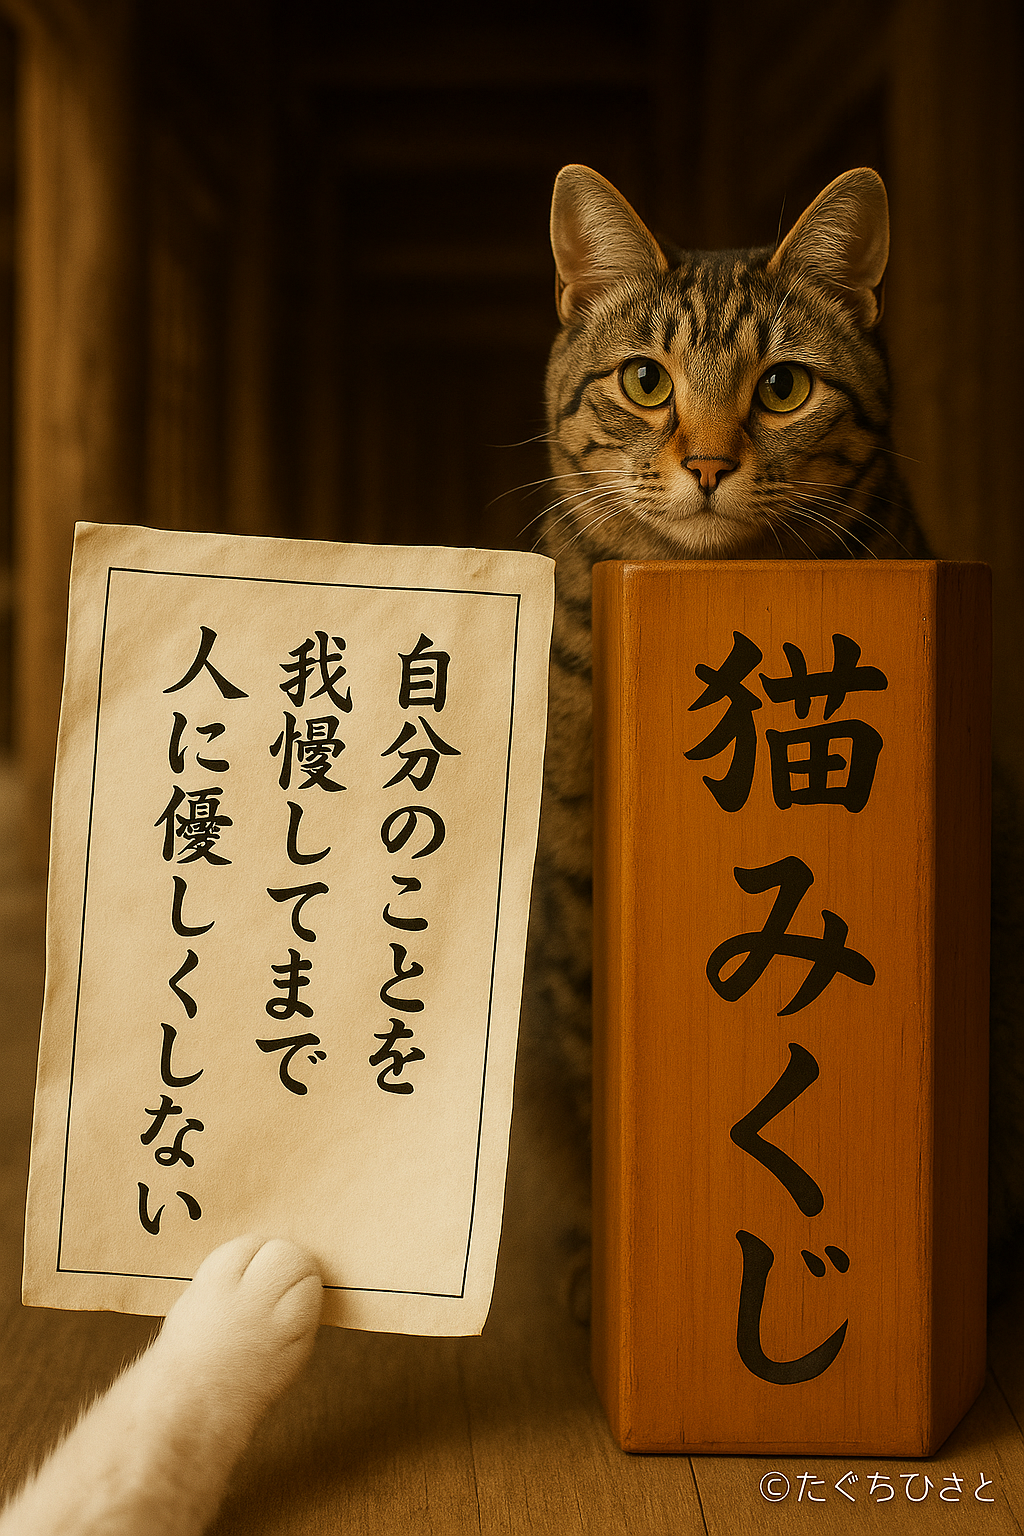 自分のことを
我慢してまで
人に優しくしない
猫みくじ
©たぐちひさと